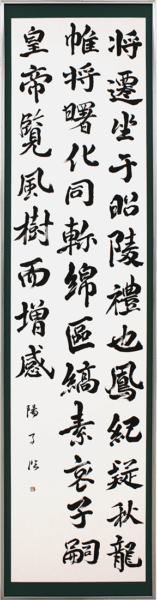 將遷坐于昭陵禮也鳳紀疑秋龍
帷將曙化同軫綿區縞素哀子嗣
皇帝覽風樹而增感
臨